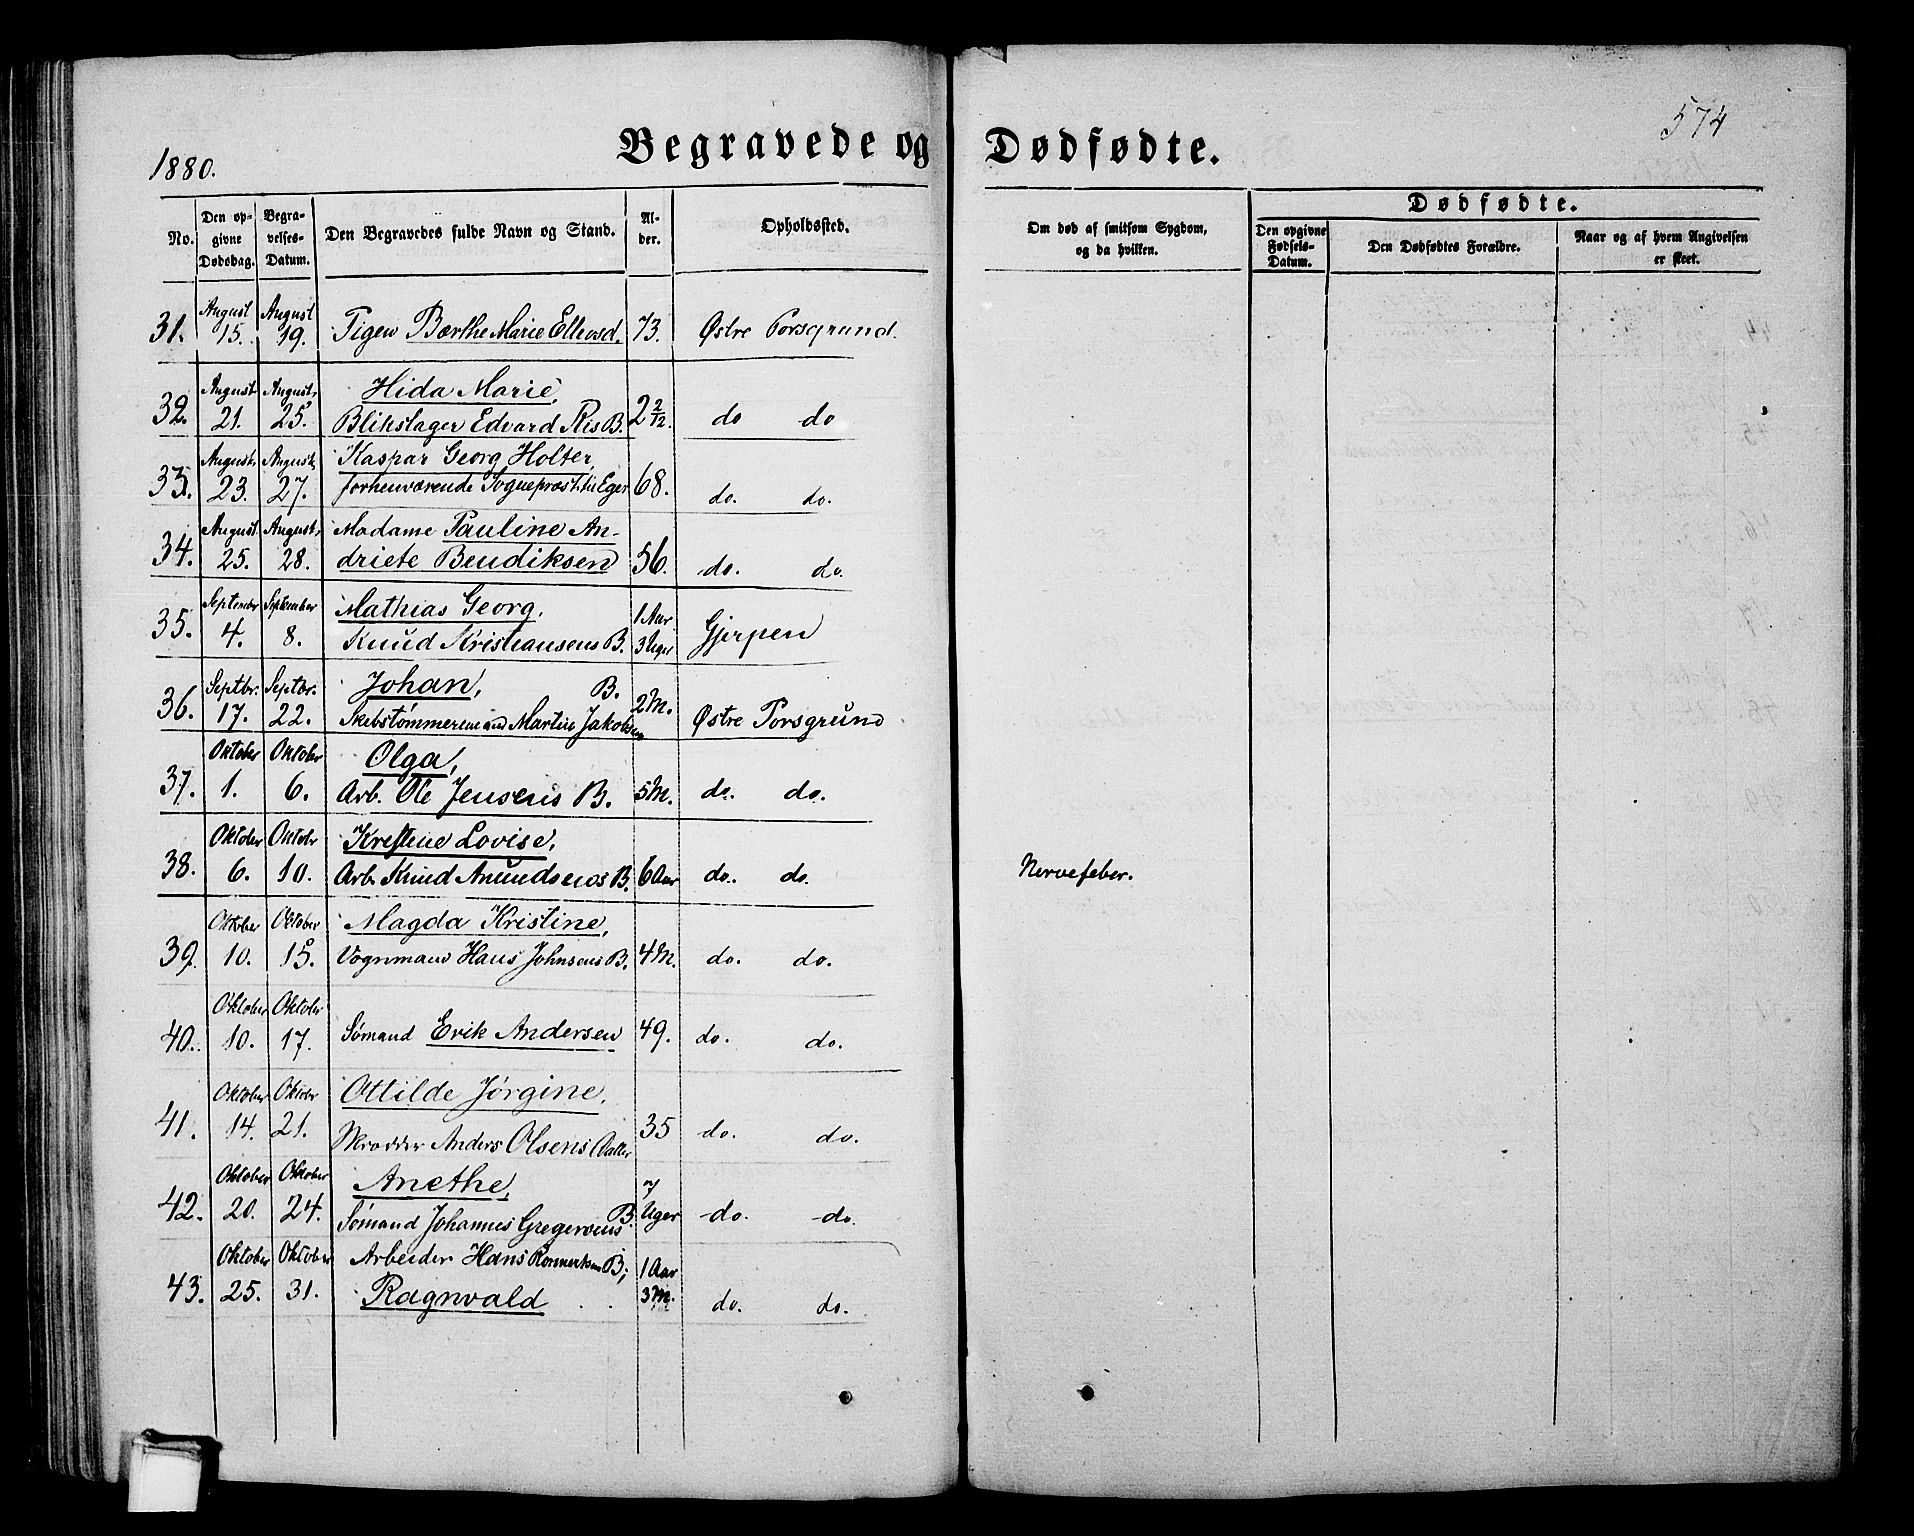 574
1880.
Begravede og Dødfødte.
No.
Den op-
givne
Dødsdag.
Begra-
velses-
Datum.
Den Begravedes fulde Navn og Stand.
Al-
der.
Opholdssted.
Om død af smitsom Sygdom,
og da hvilken.
Dødfødte.
Den opgivne
Fødsels-
Datum.
Den Dødfødtes Forældre.
Naar og af hvem Angivelsen
er skeet.
31. August 15. August 19. Pigen Bærthe Marie 73. Østre Porsgrund.
32. August 21. August 25. Hida Marie,
Blikslager Edvard Ris B. 2 2/12 do do
33. August 23. August 27. Kaspar Georg Holter,
forhenværende Sognepræst til Eger 68. do. do.
34. August 25. August 28. Madame Pauline An-
driete Bendiksen 56. do. do.
35. September 4. September 8. Mathias Georg,
Knud Kristiansens B. 1 Aar 3 Uger Gjerpen
36. Septbr. 17. Septbr. 22. Johan, B.
Skibstømmermand Martin Jakobsen 2 M. Østre Porsgrund
37. Oktober 1. Oktober 6. Olga,
Arb. Ole Jensens B. 5 M. do. do.
38. Oktober 6. Oktobr 10. Kristine Lovise,
Arb. Knud Amundsens B. 6 Aar do. do. Nervefeber.
39. Oktober 10. Oktober 15. Magda Kristine,
Vognmand Hans Johnsens B. 4 M. do. do.
40. Oktober 10. Oktober 17. Sømand Erik Andersen 49. do. do.
41. Oktober 14. Oktobr 21. Ottilde Jørgine,
Skrædder Anders Olsens Datter 35 do. do.
42. Oktober 20. Oktober 24. Anethe,
Sømand Johannes Gregersens B. 7 Uger do. do.
43. Oktober 25. Oktober 31. Arbeider Hans B;
Ragnvald 1 Aar 3 M. do. do.